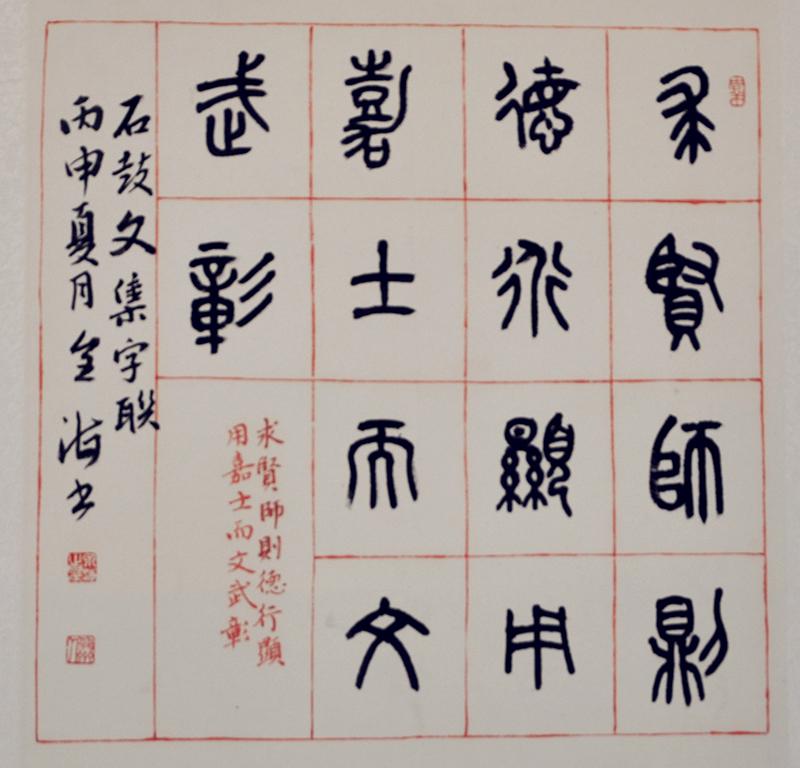 求賢師則
德行顯用
嘉士而文
武彰
求賢師則德行顯
用嘉士而文武彰
石鼓文集字联
丙申夏月金海书